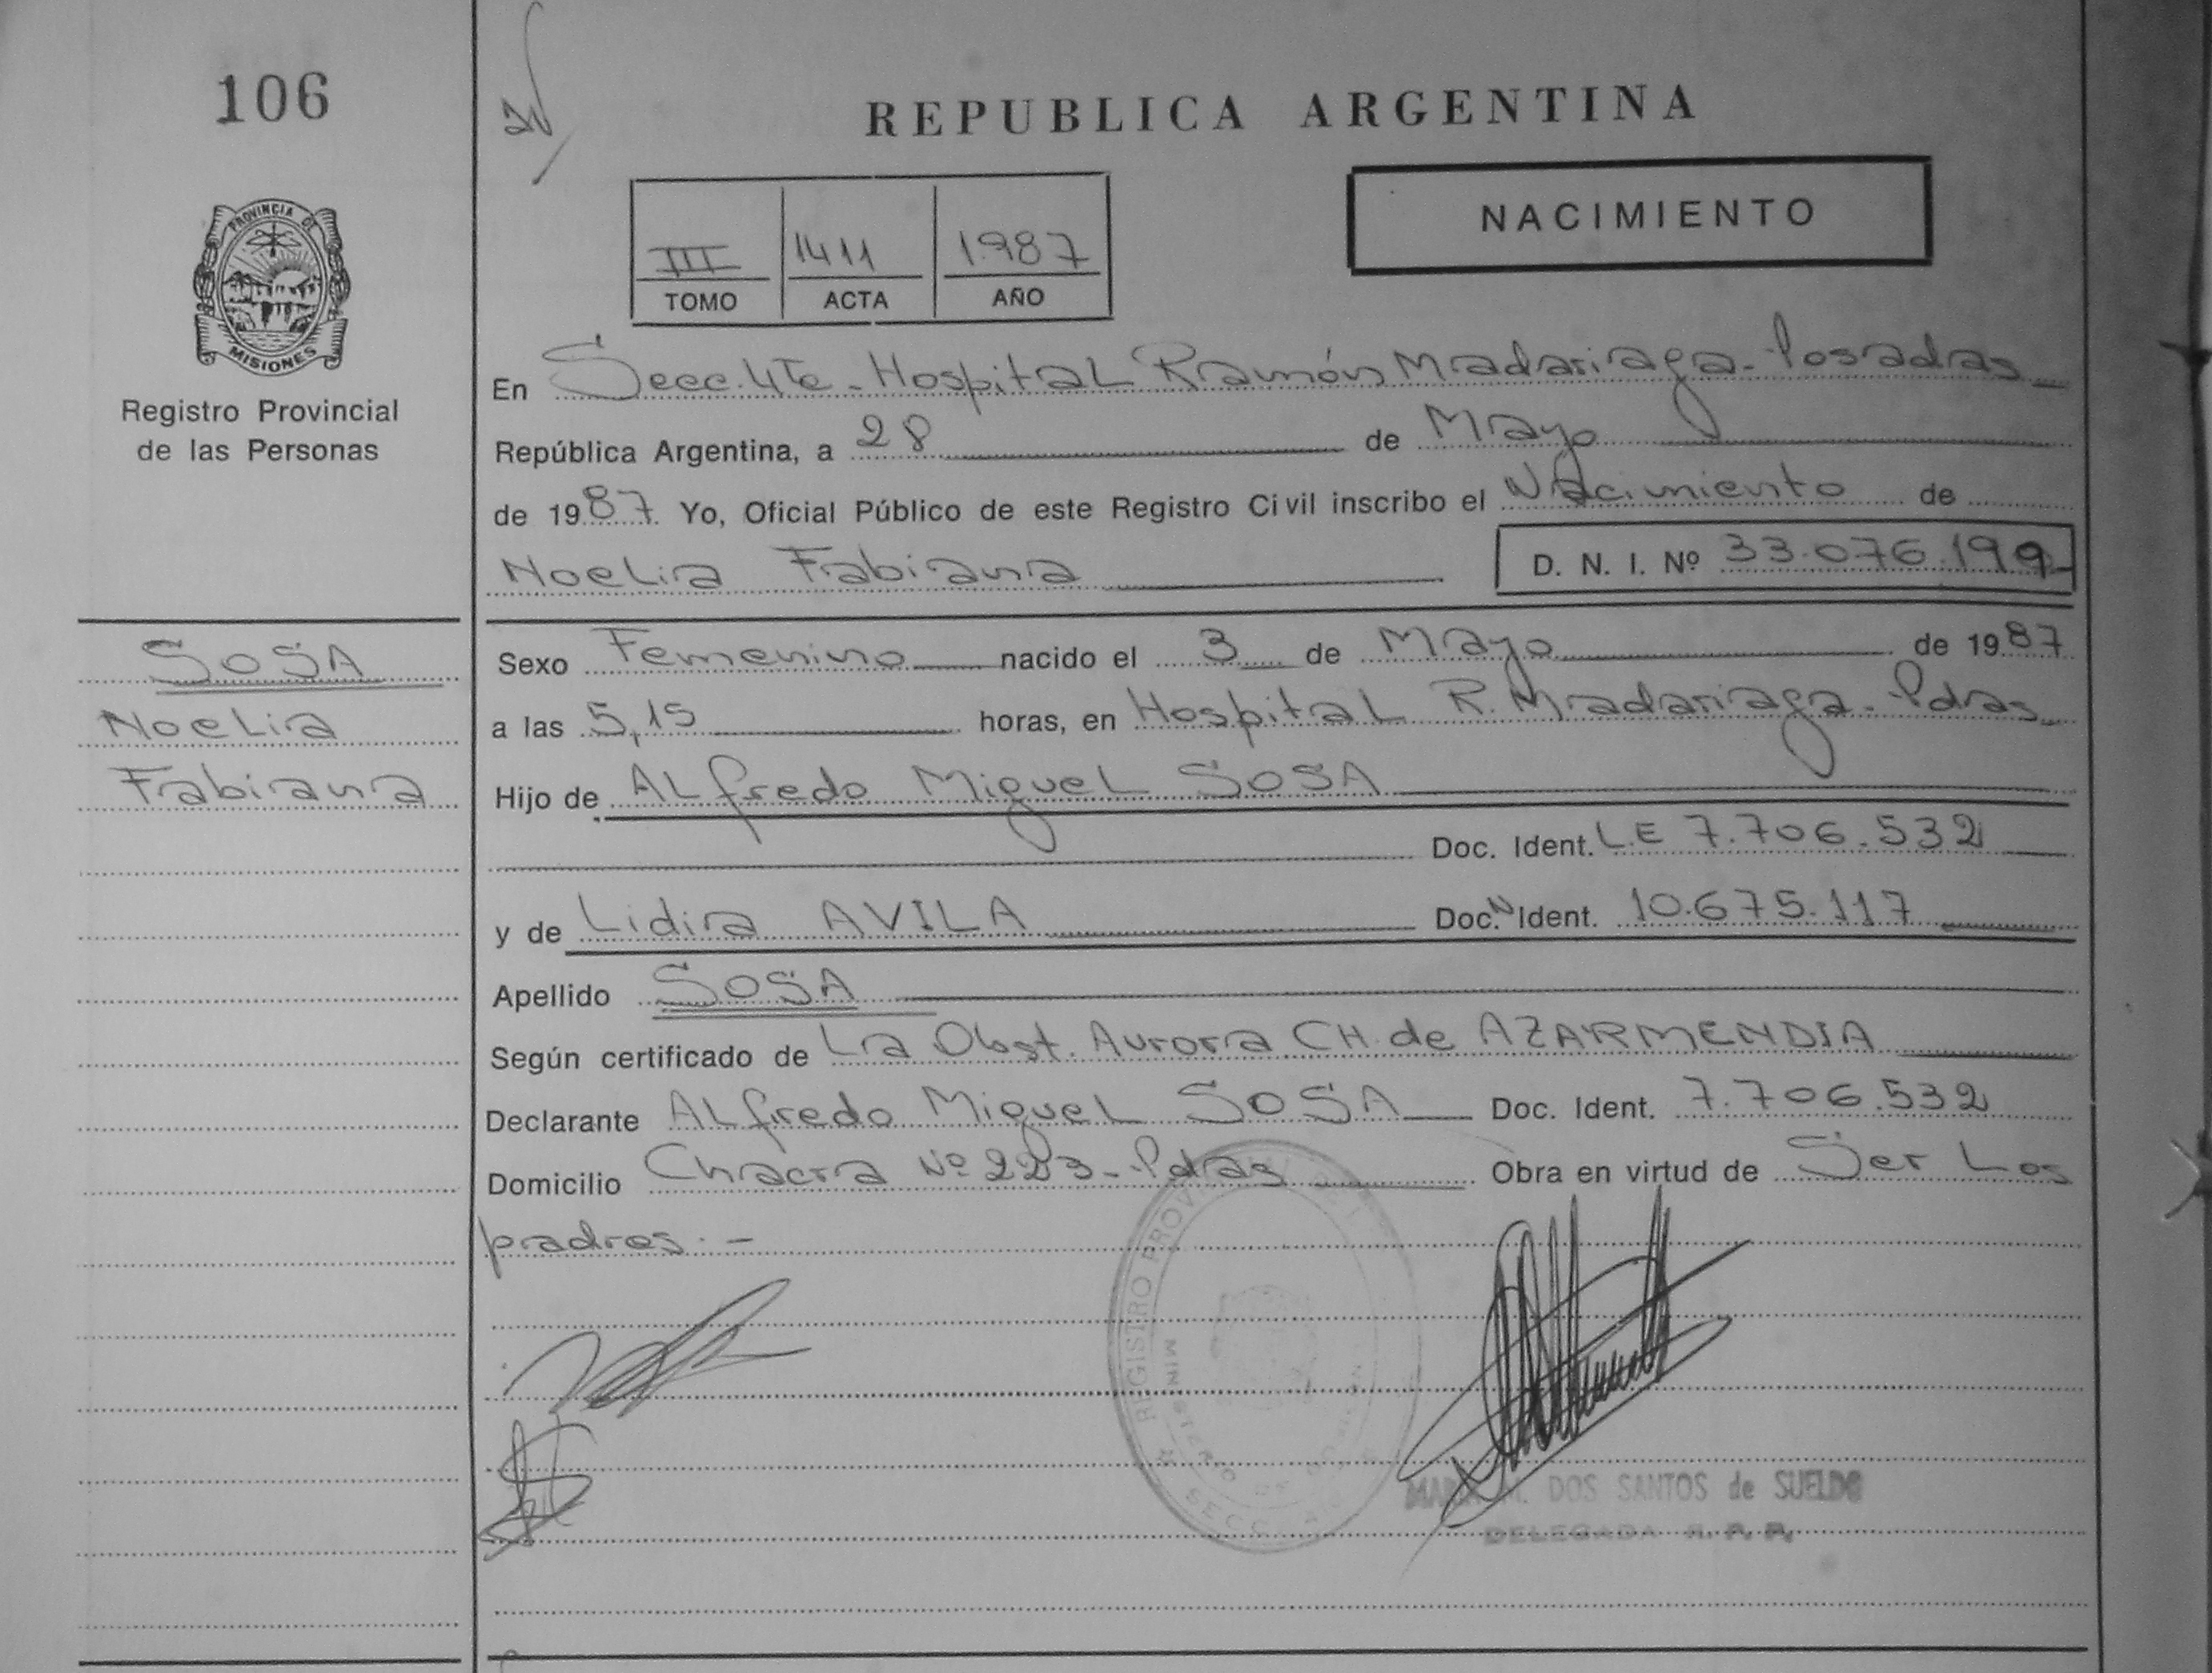 106
REPUBLICA ARGENTINA
NACIMIENTO
III 1411 1.987
TOMO ACTA AÑO
PROVINCIA DE
MISIONES
Registro Provincial
de las Personas
En Secc. 4ta - Hospital Ramón Madariaga - Posadas
República Argentina, a 28 de Mayo
de 1987 Yo, Oficial Público de este Registro Civil inscribo el Nacimiento de
Noelia Fabiana D. N. I. Nº 33.076.199
SOSA
Noelia
Fabiana
Sexo Femenino nacido el 3 de Mayo de 1987
a las 5,15 horas, en Hospital R. Madariaga - Pdas
Hijo de Alfredo Miguel SOSA
Doc. Ident. L.E 7.706.532
y de Lidia AVILA Doc. Ident. 10.675.117
Apellido SOSA
Según certificado de La Obst. Aurora CH. de AZARMENDIA
Declarante Alfredo Miguel SOSA Doc. Ident. 7.706.532
Domicilio Chacra Nº 223 - Pdas Obra en virtud de Ser Los
padres. -
REGISTRO PROVINCIAL DE
MINISTERIO DE
SECC.
MARIA M. DOS SANTOS de SUELDO
DELEGADA R. P. P.